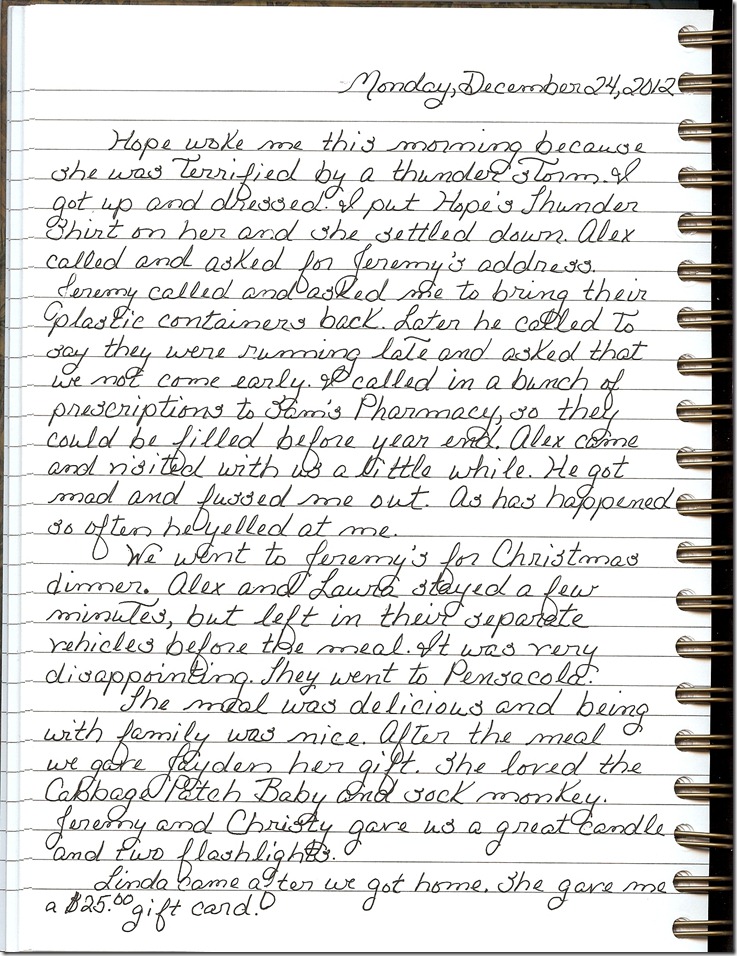 Monday, December 24, 2012
Hope woke me this morning because
she was Terrified by a thunder storm. I
got up and dressed. I put Hope's Thunder
Shirt on her and she settled down. Alex
called and asked for Jeremy's address.
Jeremy called and asked me to bring their
plastic containers back. Later he called to
say they were running late and asked that
we not come early. I called in a bunch of
prescriptions to Sam's Pharmacy, so they
could be filled before year end. Alex came
and visited with us a little while. He got
mad and fussed me out. As has happened
so often he yelled at me.
We went to Jeremy's for Christmas
dinner. Alex and Laura stayed a few
minutes, but left in their separate
vehicles before the meal. It was very
disappointing. They went to Pensacola.
The meal was delicious and being
with family was nice. After the meal
we gave Jayden her gift. She loved the
Cabbage Patch Baby and sock monkey.
Jeremy and Christy gave us a great candle
and two flashlights.
Linda came after we got home. She gave me
a $25.00 gift card.